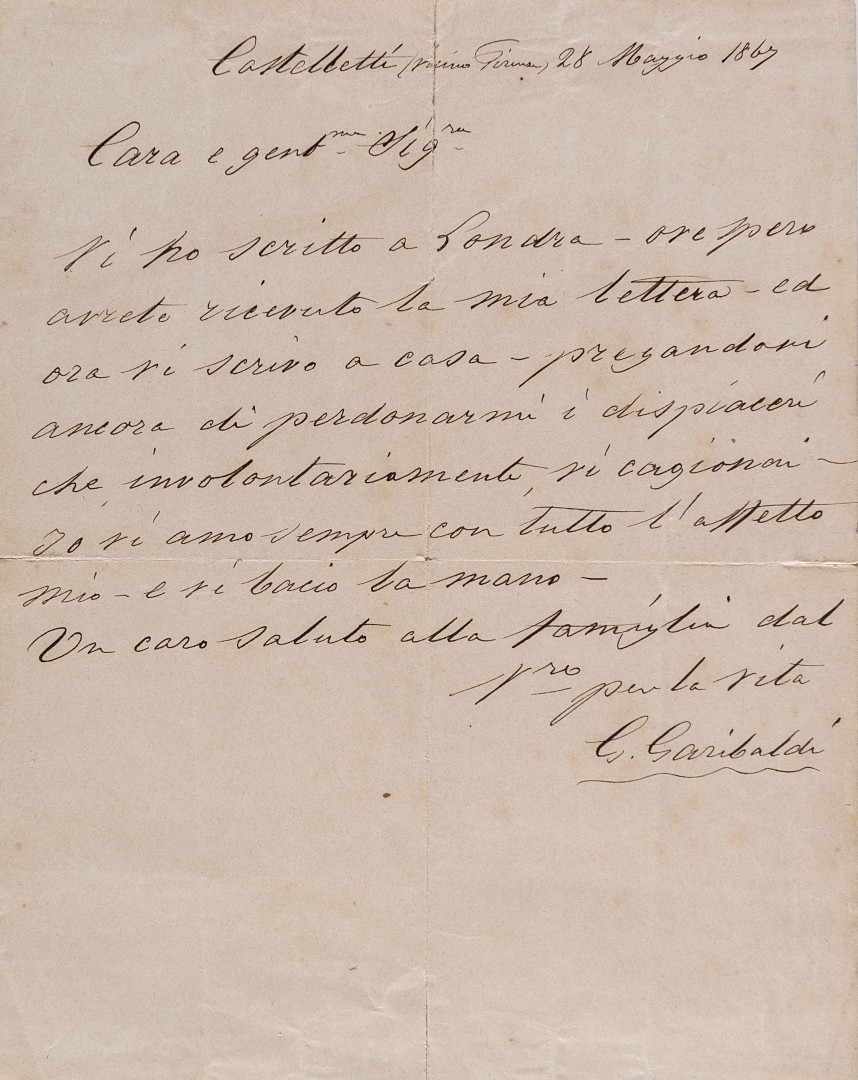 Castelletti (vicino Firenze) 28 Maggio 1867
Cara e gent.ma Sig.ra
Vi ho scritto a Londra - ove pero
avrete ricevuto la mia lettera - ed
ora vi scrivo a casa - pregandovi
ancora di perdonarmi i dispiaceri
che involontariamente vi cagionai -
Io vi amo sempre con tutto l'affetto
mio - e vi bacio la mano -
Un caro saluto alla famiglia dal
V.ro per la vita
G. Garibaldi